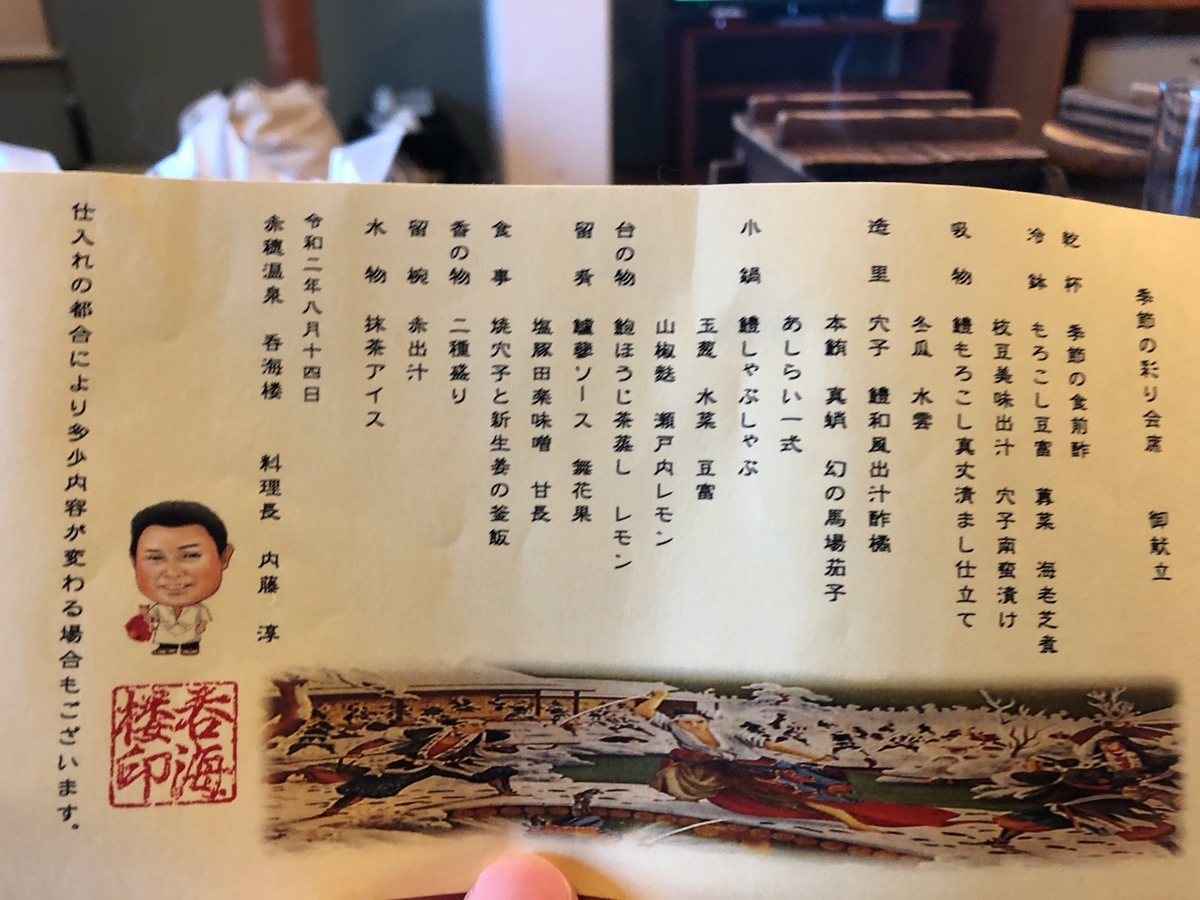 季節の彩り会席 御献立
乾杯 季節の食前酢
冷鉢 もろこし豆富 蓴菜 海老芝煮
枝豆美味出汁 穴子南蛮漬け
吸物 鱧もろこし真丈清まし仕立て
冬瓜 水雲
造里 穴子 鱧和風出汁酢橘
本鮪 真蛸 幻の馬場茄子
あしらい一式
小鍋 鱧しゃぶしゃぶ
玉葱 水菜 豆富
山椒麩 瀬戸内レモン
台の物 鮑ほうじ茶蒸し レモン
留肴 鱸蓼ソース 無花果
塩豚田楽味噌 甘長
食事 焼穴子と新生姜の釜飯
香の物 二種盛り
留椀 赤出汁
水物 抹茶アイス
令和二年八月十四日
赤穂温泉 呑海楼 料理長 内藤 淳
仕入れの都合により多少内容が変わる場合もございます。
呑海
楼印